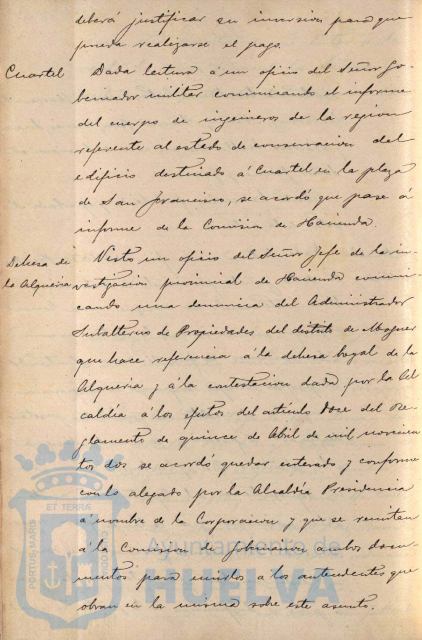 deberá justificar su inversion para que
pueda realizarse el pago.
Cuartel Dada lectura á un oficio del Señor Go-
bernador militar comunicando el informe
del cuerpo de ingenieros de la region
referente al estado de conservacion del
edificio destinado á Cuartel en la plaza
de San Francisco, se acordó que pase á
informe de la Comision de Hacienda.
Dehesa de Visto un oficio del Señor Jefe de la in-
la Alqueria vestigacion provincial de Hacienda comuni-
cando una denuncia del Administrador
Subalterno de Propiedades del distrito de Moguer
que hace referencia á la dehesa boyal de la
Alqueria y á la contestacion dada por la Al
caldía á los efectos del artículo doce del Re-
glamento de quince de Abril de mil novecien
tos dos se acordó quedar enterado y conforme
con lo alegado por la Alcaldía Presidencia
á nombre de la Corporacion y que se remitan
á la Comision de Gobernacion ambos docu-
mentos para unirlos a los antecedentes que
obran en la misma sobre este asunto.
ET TERRÆ
PORTUS MARIS
Ayuntamiento de
HUELVA